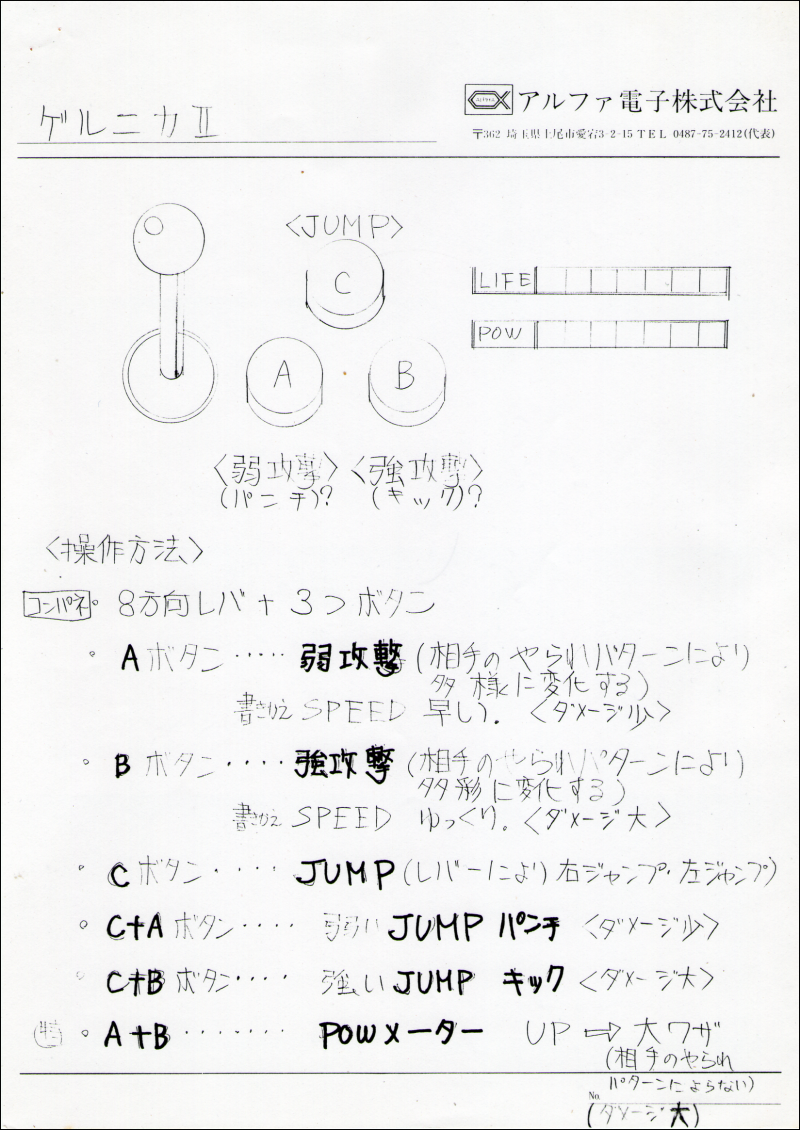 ゲルニカⅡ
アルファ電子株式会社
〒362 埼玉県上尾市愛宕3-2-15 TEL 0487-75-2412(代表)
<JUMP>
C
LIFE
POW
A
B
<弱攻撃> <強攻撃>
(パンチ)? (キック)?
<操作方法>
コンパネ 8方向レバ + 3つボタン
Aボタン・・・・・ 弱攻撃 (相手のやられパターンにより
多様に変化する)
書きかえ SPEED 早い. <ダメージ少>
Bボタン・・・・ 強攻撃 (相手のやられパターンにより
多彩に変化する)
書きかえ SPEED ゆっくり. <ダメージ大>
Cボタン・・・・・ JUMP (レバーにより右ジャンプ・左ジャンプ)
C+Aボタン・・・・ 弱い JUMP パンチ <ダメージ少>
C+Bボタン・・・・ 強い JUMP キック <ダメージ大>
特 A+B・・・・・・・ POWメーター UP ⇨ 大ワザ
(相手のやられ
パターンによらない)
No.
(ダメージ大)